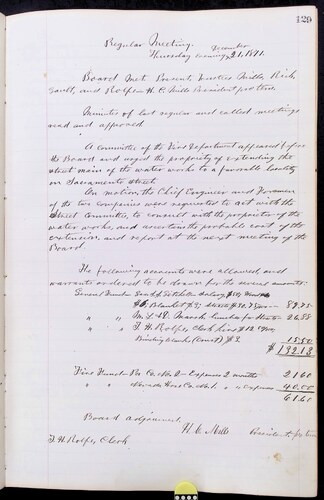 129
Regular Meeting.
December
Thursday evening 21, 1871.
Board Met. Present Trustees Mills, Rich,
Gault, and Rolfe— H. C. Mills President pro tem.
Minutes of last regular and called meetings
read and approved
A committee of the Fire Department appeared before
the Board and urged the propriety of extending the
street main of the water works to a favorable locality
on Sacramento street.
On motion, the Chief Engineer and Foremen
of the two companies were requested to act with the
Street Committee, to counsel with the proprietor of the
water works, and ascertain the probable cost of the
extension, and report at the next meeting of the
Board.
The following accounts were allowed, and
warrants ordered to be drawn for the several amounts:
General Fund
Blanket $3;
89.75
" " M. L. & D. Marsh, lumber for
26.88
" " J. H. Rolfe, Clerk
Binding books (Court) $3
15.50
$132.13
Fire Fund— Co. No. 2— Expenses 2 months
21.60
" " Nevada Hose Co. No. 1 " " Expenses
40.00
61.60
Board adjourned.
H. C. Mills
President pro tem
J. H. Rolfe, Clerk